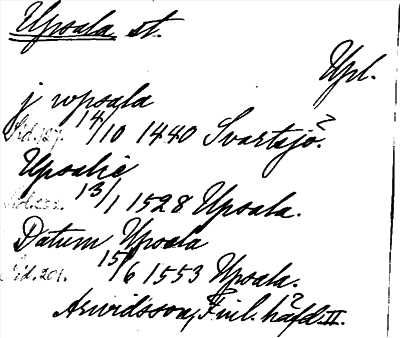 Upsala st.
Upl.
j vpsala
Sid. 14/10 1440 Svartsjö?
Upsalie
13/1 1528 Upsala.
Datum Upsala
Sid. 201. 15/6 1553 Upsala.
Arwidsson, Finl. häfd. II.